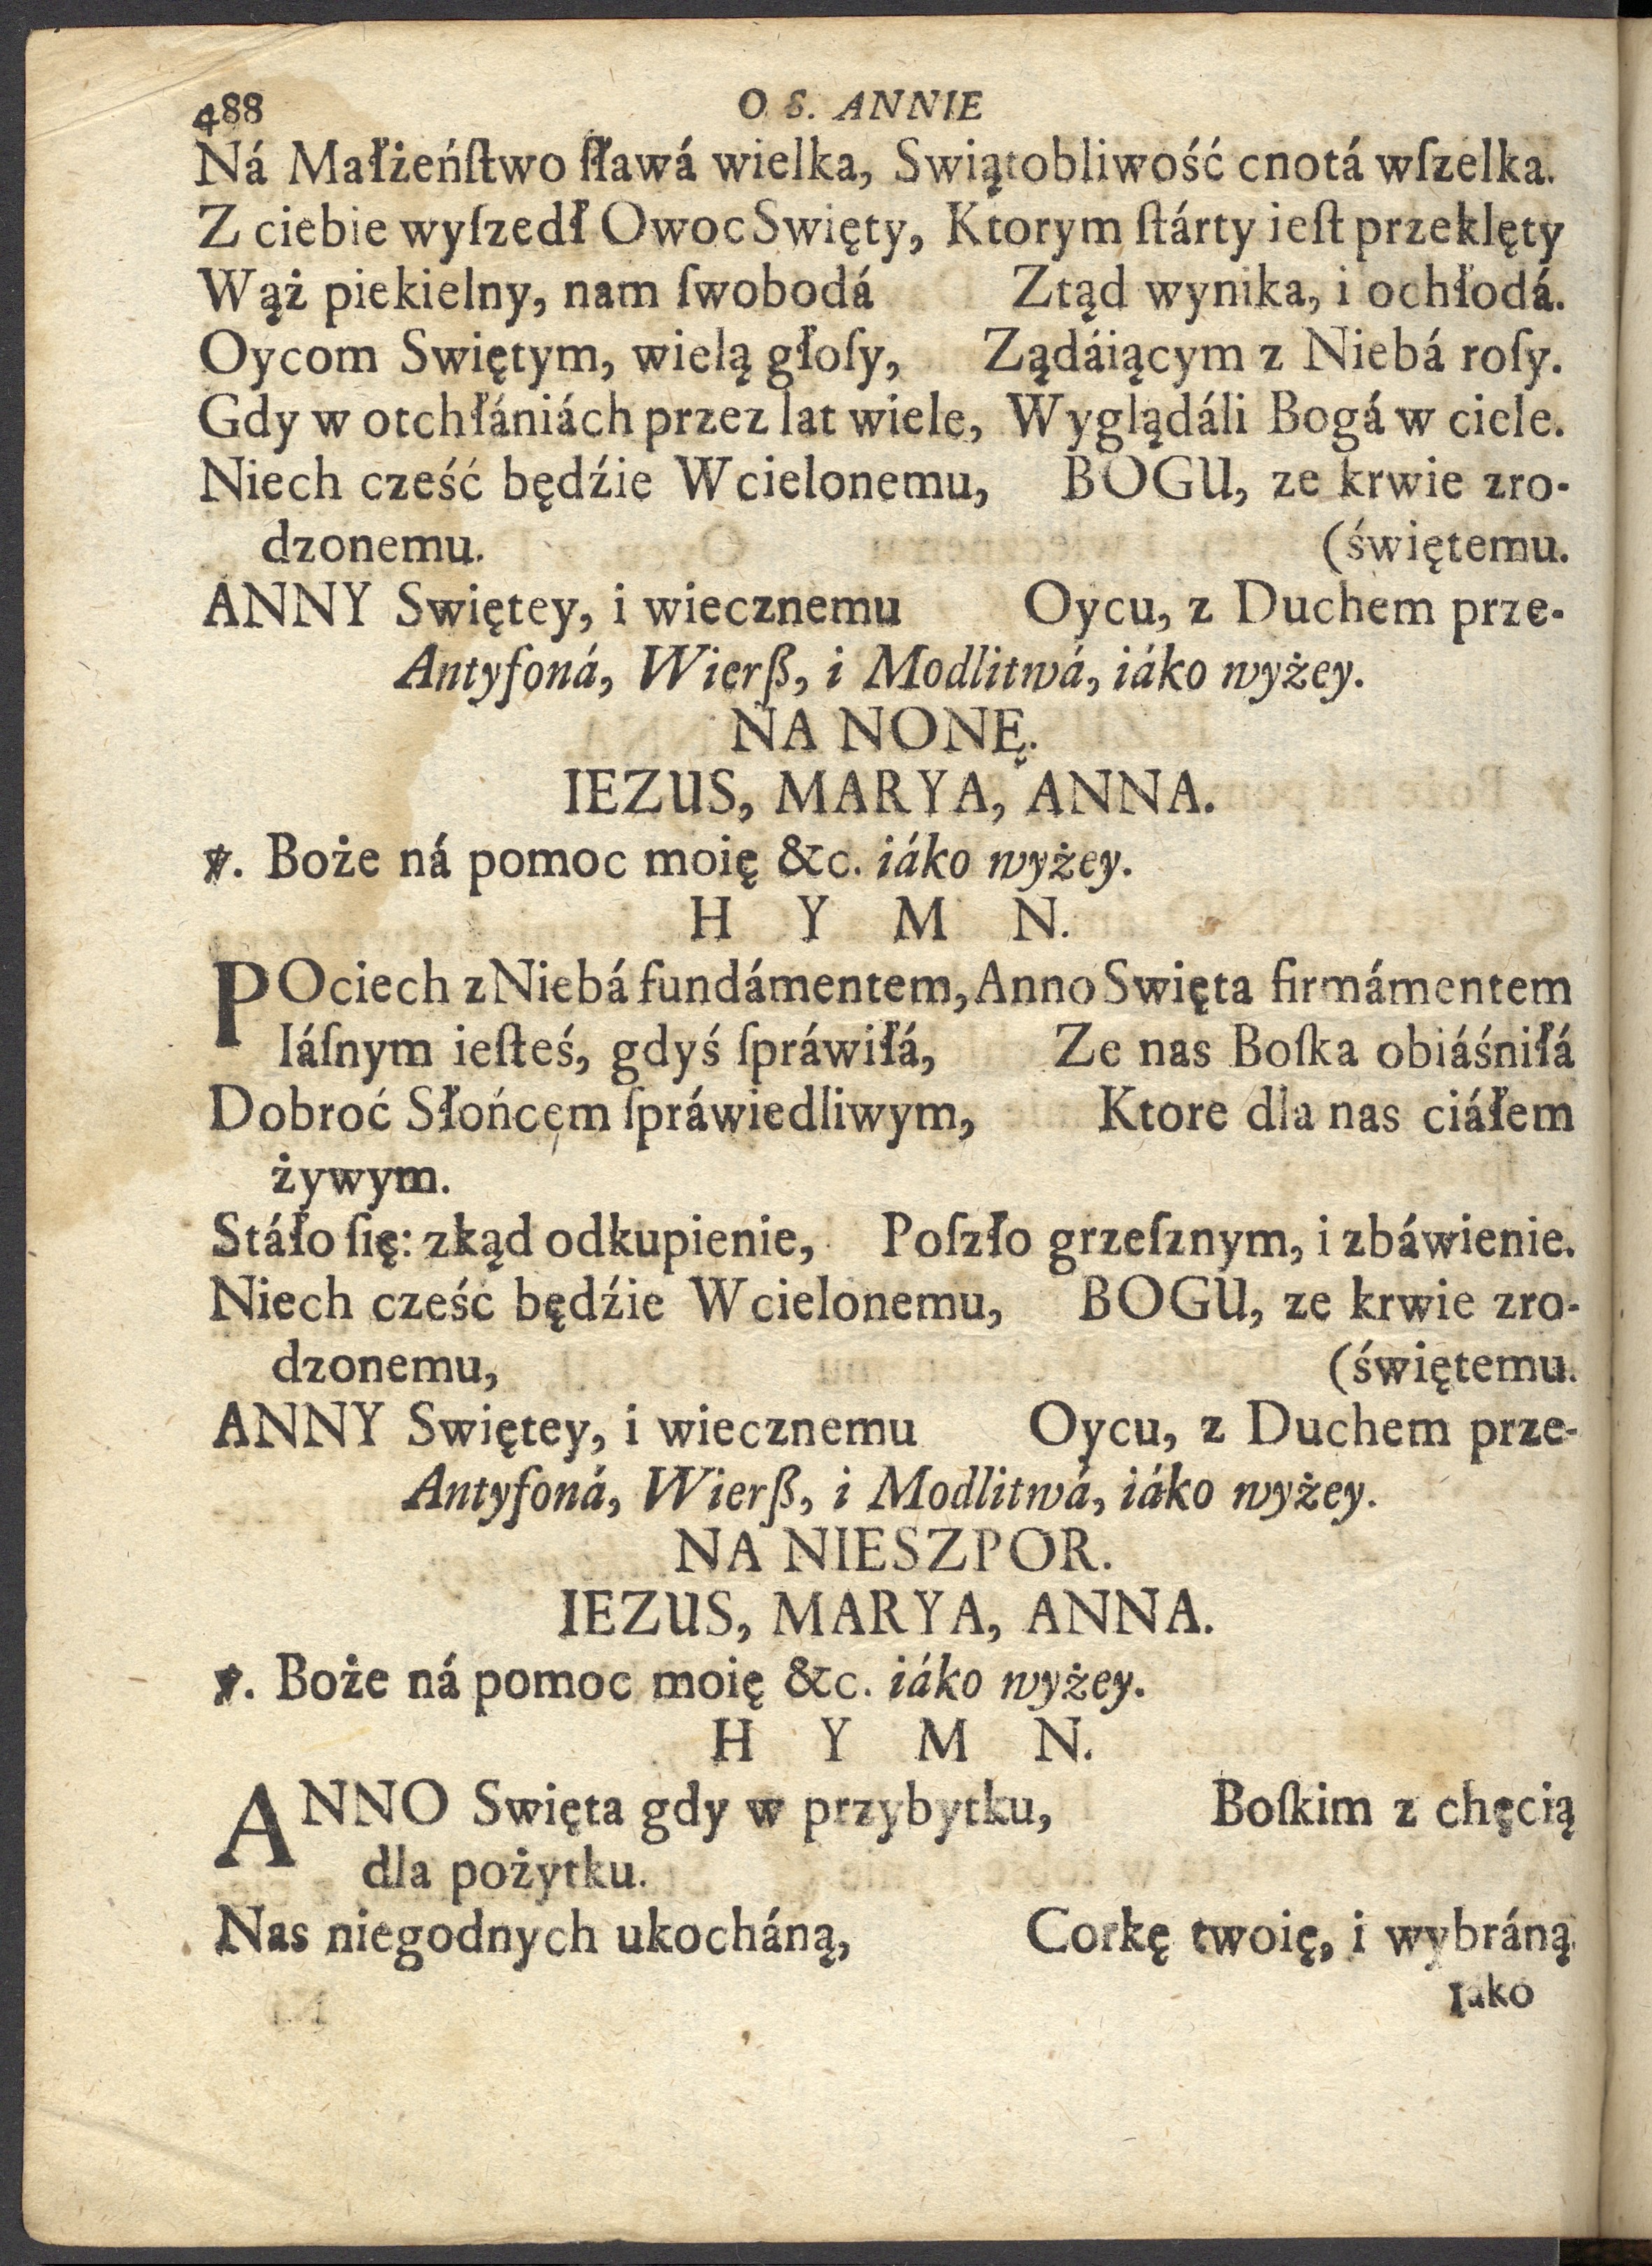 488 O S. ANNIE
Ná Małżeńſtwo ſławá wielka, Swiątobliwość cnotá wſzelka.
Z ciebie wyſzedł Owoc Swięty, Ktorym ſtárty ieſt przeklęty
Wąż piekielny, nam ſwobodá Ztąd wynika, i ochłodá.
Oycom Swiętym, wielą głoſy, Ządáiącym z Niebá roſy.
Gdy w otchłániách przez lat wiele, Wyglądáli Bogá w ciele.
Niech cześć będźie Wcielonemu, BOGU, ze krwie zro-
dzonemu. (świętemu.
ANNY Swiętey, i wiecznemu Oycu, z Duchem prze-
Antyfoná, Wierß, i Modlitwá, iáko wyżey.
NA NONĘ.
IEZUS, MARYA, ANNA.
℣. Boże ná pomoc moię &c. iáko wyżey.
H Y M N.
POciech z Niebá fundámentem, Anno Swięta firmámentem
Iáſnym ieſteś, gdyś ſpráwiłá, Ze nas Boſka obiáśniłá
Dobroć Słońcem ſpráwiedliwym, Ktore dla nas ciáłem
żywym.
Stáło ſię: zkąd odkupienie, Poſzło grzeſznym, i zbáwienie.
Niech cześć będźie Wcielonemu, BOGU, ze krwie zro-
dzonemu, (świętemu.
ANNY Swiętey, i wiecznemu Oycu, z Duchem prze-
Antyfoná, Wierß, i Modlitwá, iáko wyżey.
NA NIESZPOR.
IEZUS, MARYA, ANNA.
℣. Boże ná pomoc moię &c. iáko wyżey.
H Y M N.
ANNO Swięta gdy w przybytku, Boſkim z chęcią
dla pożytku.
Nas niegodnych ukocháną, Corkę twoię, i wybráną
Iako